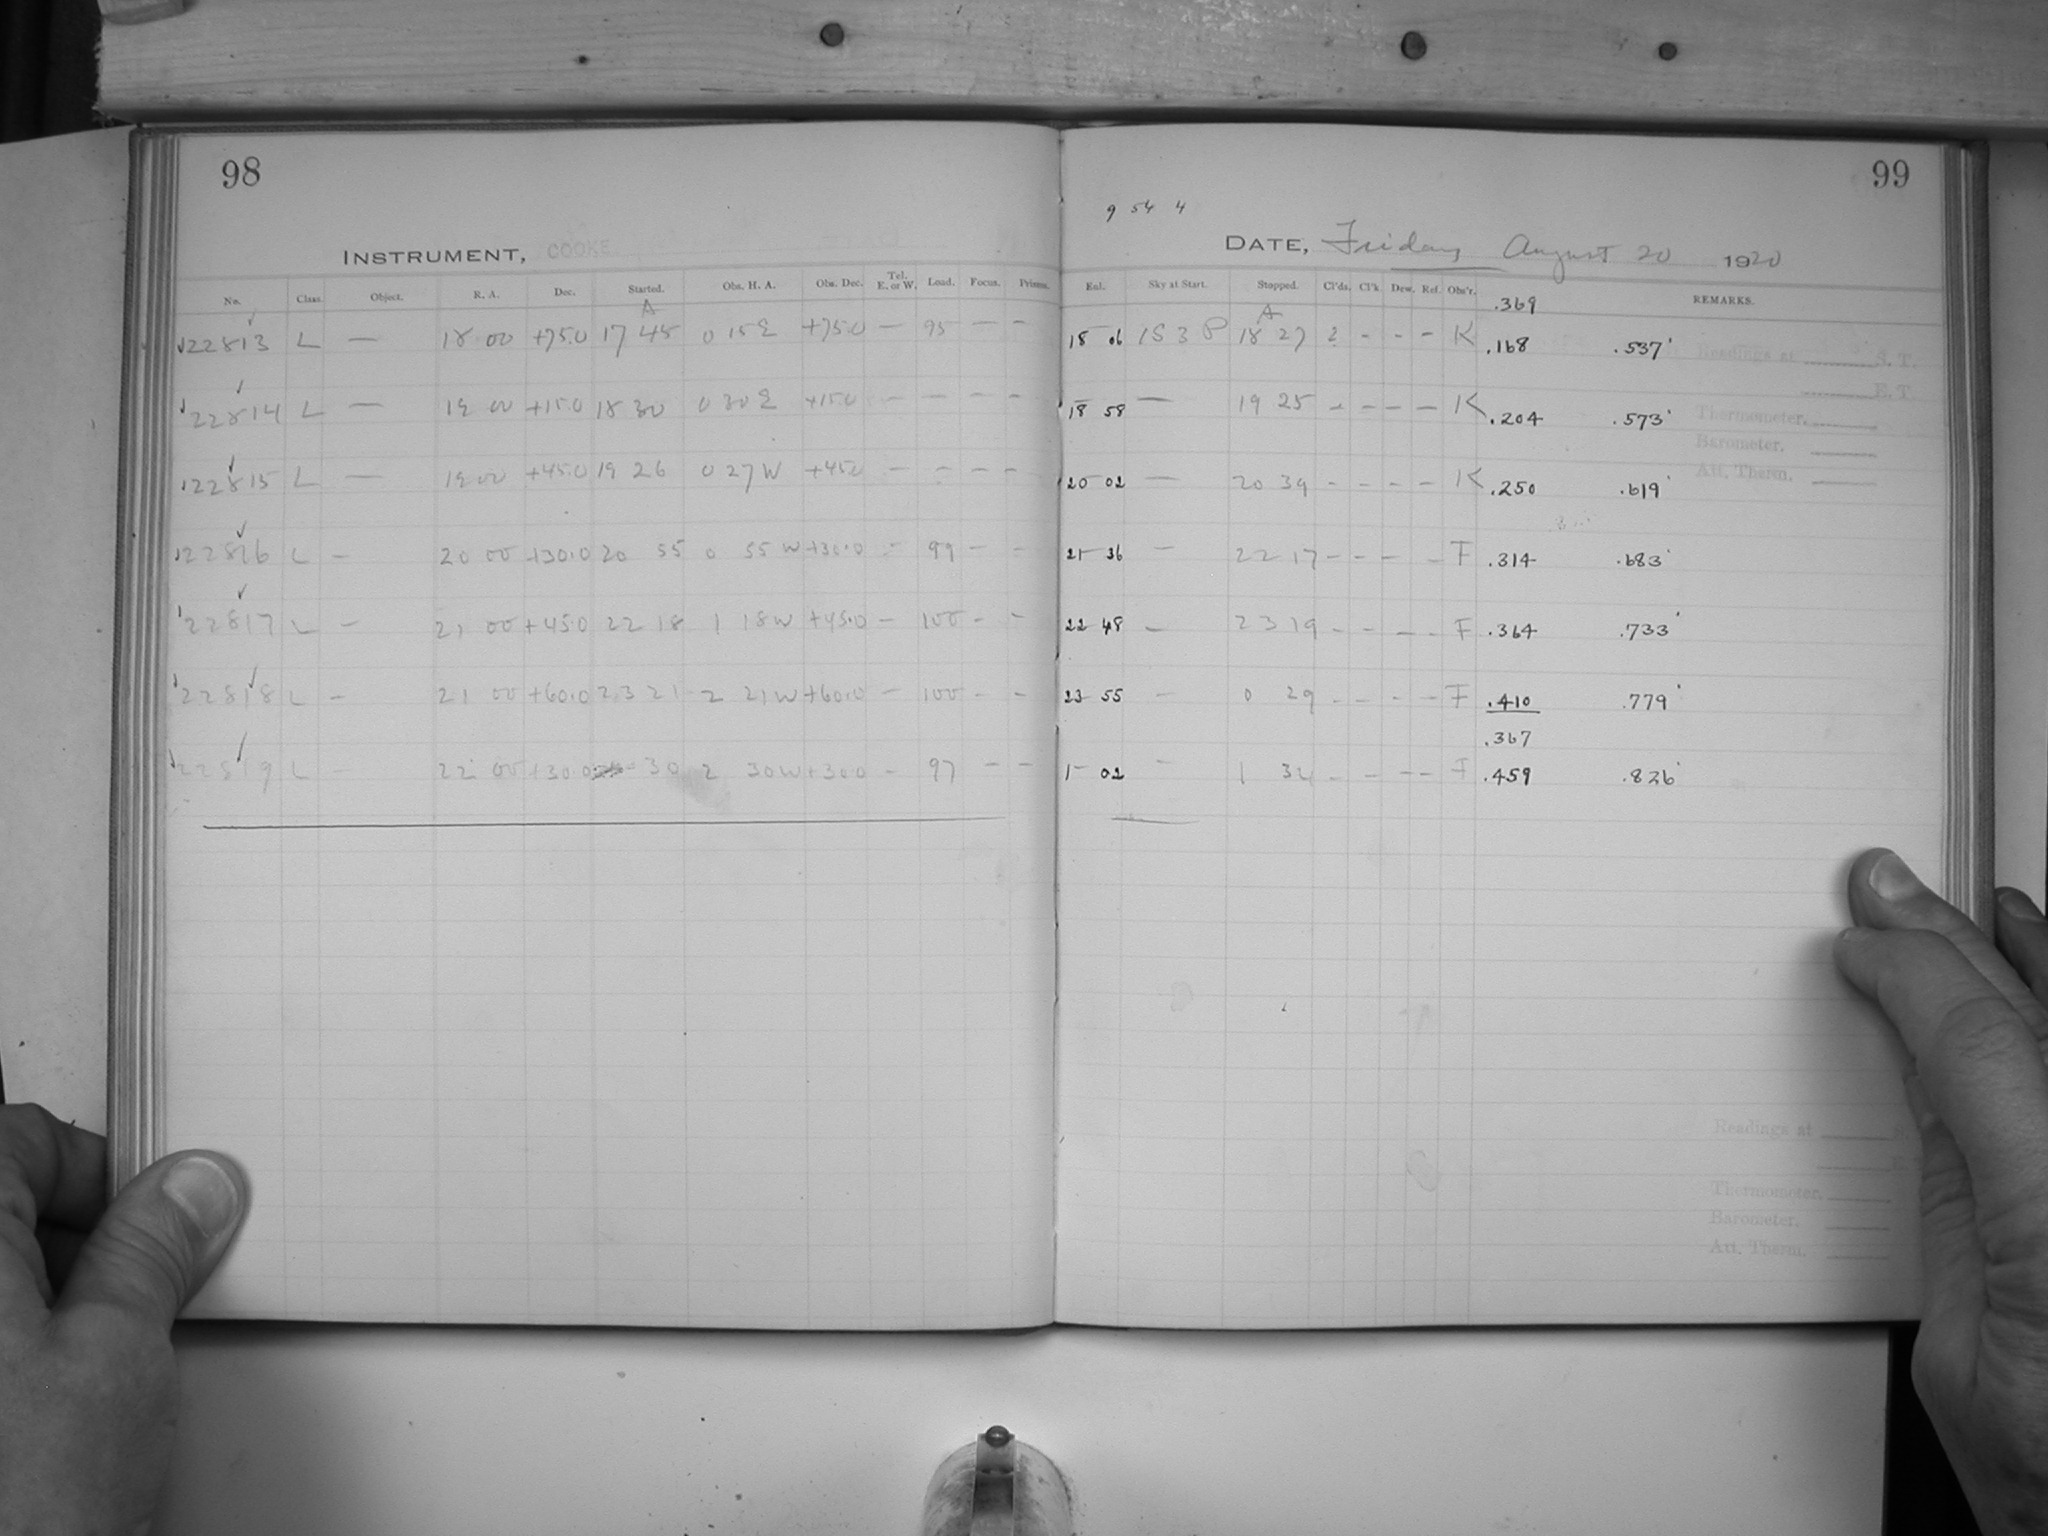 98
99
9 54 4
INSTRUMENT, COOKE.
DATE, Friday August 20 1920
No. Class. Object. R. A. Dec. Started. Obs. H. A. Obs. Dec. Tel. E. or W. Load. Focus. Prisms. Exl. Sky at Start. Stopped. Cl'ds. Cl'k. Dew. Ref. Obs'r. .369 REMARKS.
A A
22813 L — 18 00 +75.0 17 45 0 15 E +75.0 — 95 — — 18 06 1S 3 P 18 27 2 - - - K .168 .537
22814 L — 19 00 +15.0 18 30 0 30 E +15.0 — — — — 18 58 — 19 25 - — — — K .204 .573
22815 L — 19 00 +45.0 19 26 0 27 W +45.0 — - — — 20 02 — 20 39 - - - - K .250 .619
22816 L - 20 00 +30.0 20 55 0 55 W +30.0 - 99 - - 21 36 - 22 17 - - - - F .314 .683
22817 L - 21 00 +45.0 22 18 1 18 W +45.0 - 100 - - 22 48 - 23 19 - - - - F .364 .733
22818 L - 21 00 +60.0 23 21 2 21 W +60.0 - 100 - - 23 55 - 0 29 - - - - F .410 .779
.367
22819 L - 22 00 +30.0 30 2 30 W +30.0 - 97 - - 1 02 - 1 34 - - - - F .459 .826
Readings at S. T.
E. T
Thermometer,
Barometer,
Att. Therm.
Readings at S.
Thermometer,
Barometer,
Att. Therm.